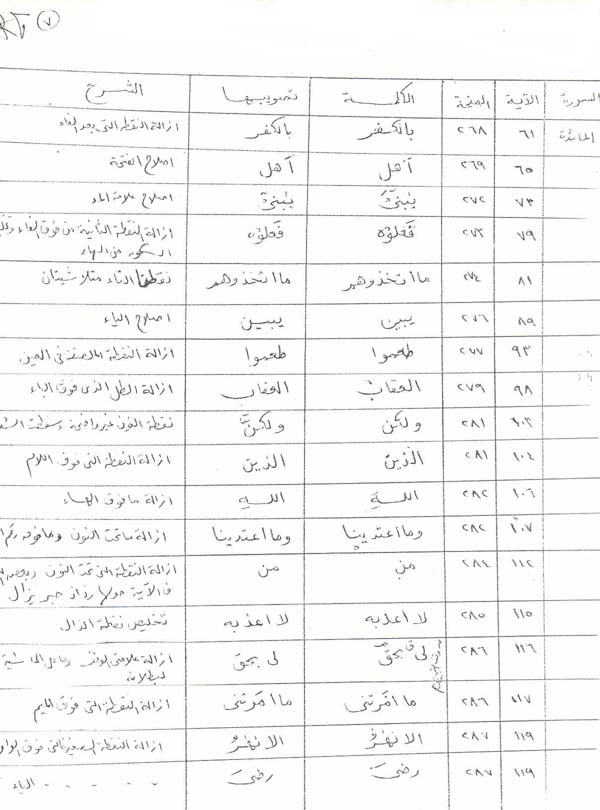 ٧
السورة الآية الصفحة الكلمة تصويبها الشرح
المائدة ٦١ ٢٦٨ بالكفر بالكفر ازالة النقطة التى بعد الفاء
٦٥ ٢٦٩ أهل أهل اصلاح الفتحة
٧٣ ٢٧٢ يبنى يبنى اصلاح علامة المد
٧٩ ٢٧٣ فعلوه فعلوه ازالة النقطة الثانية من فوق الفاء
السكون من الهاء
٨١ ٢٧٤ ما اتخذوهم ما اتخذوهم نقطتا التاء متلاشيتان
٨٩ ٢٧٦ يبين يبين اصلاح الياء
٩٣ ٢٧٧ طعموا طعموا ازالة النقطة الملصقة فى العين
٩٨ ٢٧٩ العقاب العقاب ازالة الظل الذى فوق الباء
١٠٣ ٢٨١ ولكن ولكنّ نقطة النون غير واضحة وسقطت
١٠٤ ٢٨١ الذين الذين ازالة النقطة التى فوق اللام
١٠٦ ٢٨٢ الله الله ازالة ما فوق الهاء
١٠٧ ٢٨٢ وما اعتدينا وما اعتدينا ازالة ما تحت النون وما فوق رقم
١١٢ ٢٨٤ من من ازالة النقطة التى تحت النون
فى الآية حولها رذاذ حبر يزال
١١٥ ٢٨٥ لا اعذبه لا اعذبه تخليص نقطة الذال
١١٦ ٢٨٦ لى بحق لى بحق ازالة علامتى الوقف وما على الحاشية
١١٧ ٢٨٦ ما امرتنى ما امرتنى ازالة النقطة التى فوق الميم
١١٩ ٢٨٧ الانهر الانهر ازالة النقطة الصغيرة التى فوق
١١٩ ٢٨٧ رضى رضى " " " " الياء